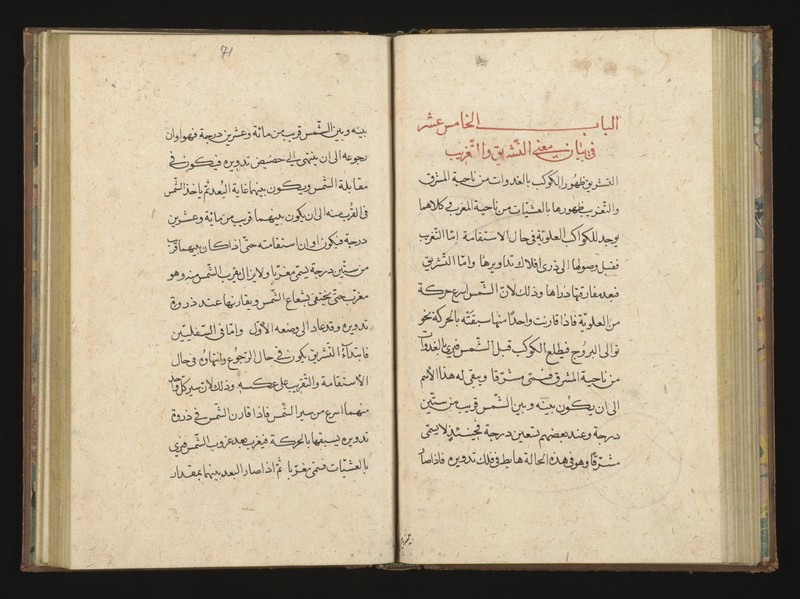 الباب الخامس عشر
في بيان معنى التشريق والتغريب
التشريق ظهور الكوكب بالغدوات من ناحية المشرق
والتغريب ظهورها بالعشيات من ناحية المغرب في كلاهما
يوجد للكواكب العلوية في حال الاستقامة اما التغريب
فقبل وصولها الى ذرى افلاك تداويرها واما التشريق
فبعد مفارقتها ذراها وذلك لان الشمس اسرع حركة
من العلوية فاذا قارنت واحدًا منها سبقته بالحركة نحو
توالى البروج فيطلع الكوكب قبل الشمس فيرى بالغدوات
من ناحية المشرق فسمى مشرقا ويبقى له هذا الاسم
الى ان يكون بينه وبين الشمس قريب من ستين
درجة وعند بعضهم تسعين درجة فحينئذ لا يسمى
مشرقا وهو في هذه الحالة هابط في فلك تدويره فاذا صار
71
بينه وبين الشمس قريب من مائة وعشرين درجة فهو اوان
رجوعه الى ان ينتهى الى حضيض تدويره فيكون في
مقابلة الشمس ويكون بينهما غاية البعد ثم ياخذ الشمس
في القرب منه الى ان يكون بينهما قريب من مائة وعشرين
درجة فيكون اوان استقامته حتى اذا كان بينهما قريب
من ستين درجة يسمى مغربا ولا يزال يقرب الشمس منه وهو
مغرب حتى يختفى بشعاع الشمس ويقارنها عند ذروة
تدويره وقد عاد الى وضعه الاول واما في السفليين
فابتداء التشريق يكون في حال الرجوع وانتهاؤه في حال
الاستقامة والتغريب على عكسه وذلك لان سير كل واحد
منهما اسرع من سير الشمس فاذا قارن الشمس في ذروة
تدويره يسبقها بالحركة فيغرب بعد غروب الشمس فيرى
بالعشيات فسمى مغربا ثم اذا صار البعد بينهما بمقدار